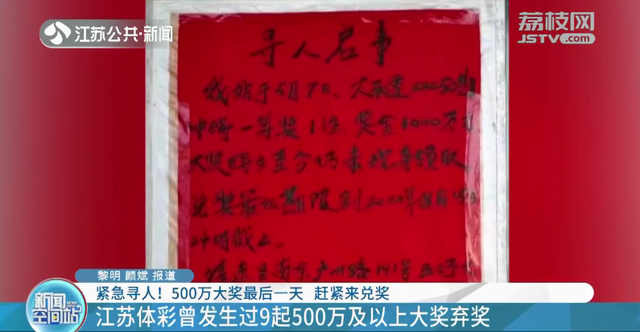 江苏公共·新闻
荔枝网
JSTV.com
寻人启事
我站于5月7日,大乐透
中得一等奖1注,奖金1000万元
大奖得主至今仍未现身领取
兑奖最后期限到2022年
时截止。
南京广州路191号
黎明 颜斌 报道
紧急寻人!500万大奖最后一天 赶紧来兑奖
新闻空间站
江苏体彩曾发生过9起500万及以上大奖弃奖